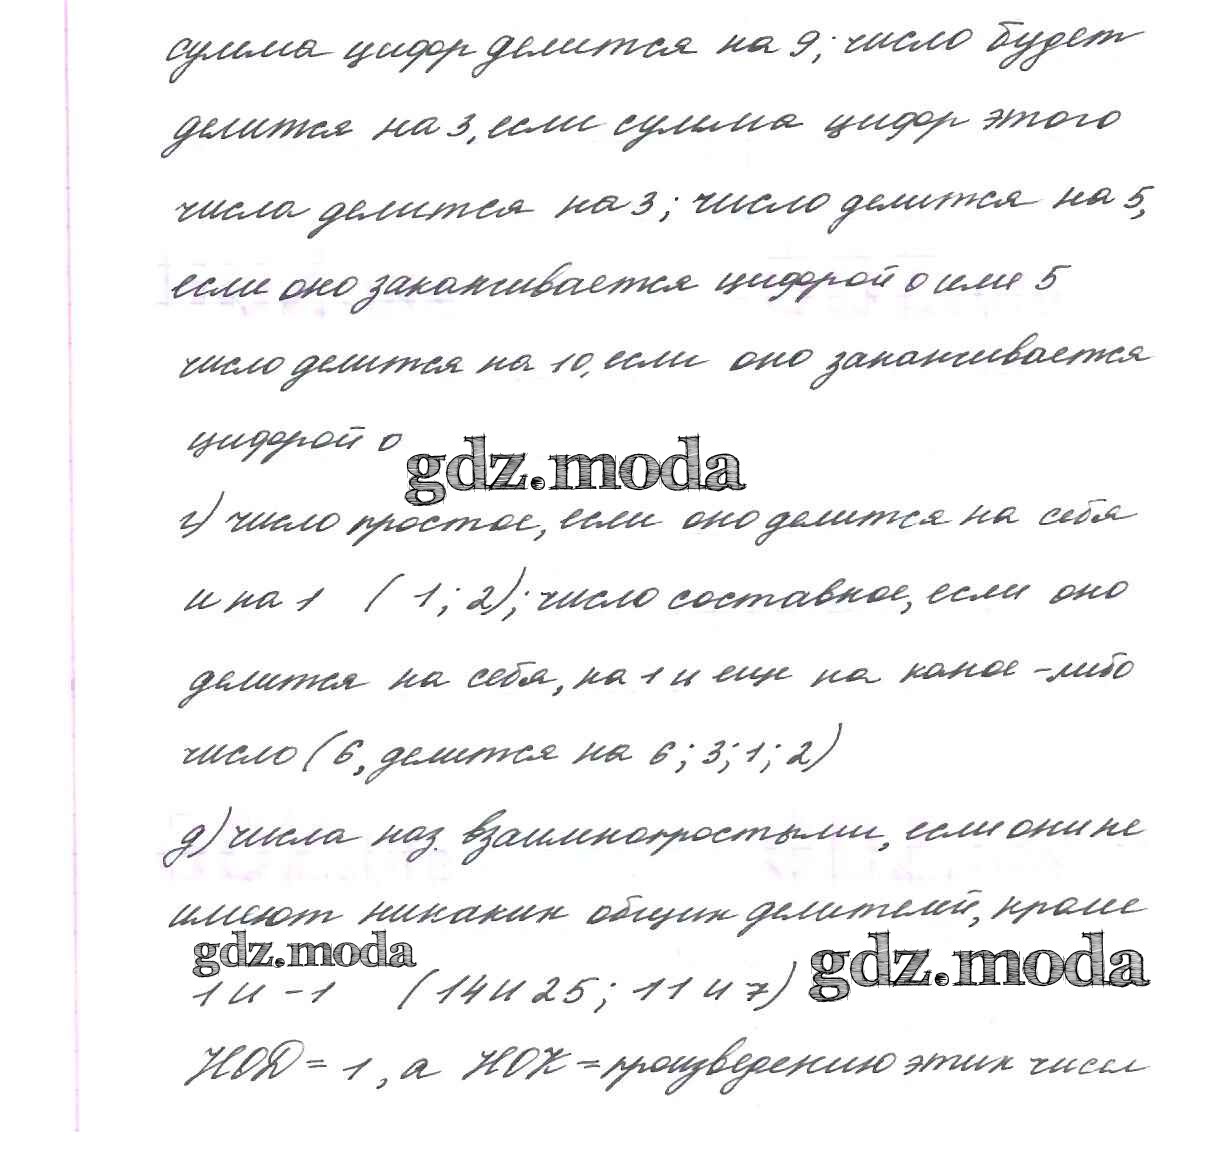 сумма цифр делится на 9; число будет
делится на 3, если сумма цифр этого
числа делится на 3; число делится на 5,
если оно заканчивается цифрой 0 или 5
число делится на 10, если оно заканчивается
цифрой 0
gdz.moda
г) число простое, если оно делится на себя
и на 1 ( 1; 2); число составное, если оно
делится на себя, на 1 и еще на какое-либо
число (6, делится на 6; 3; 1; 2)
д) числа наз. взаимнопростыми, если они не
имеют никаких общих делителей, кроме
gdz.moda
gdz.moda
1 и -1 (14 и 25; 11 и 7)
НОД = 1, а НОК = произведению этих чисел